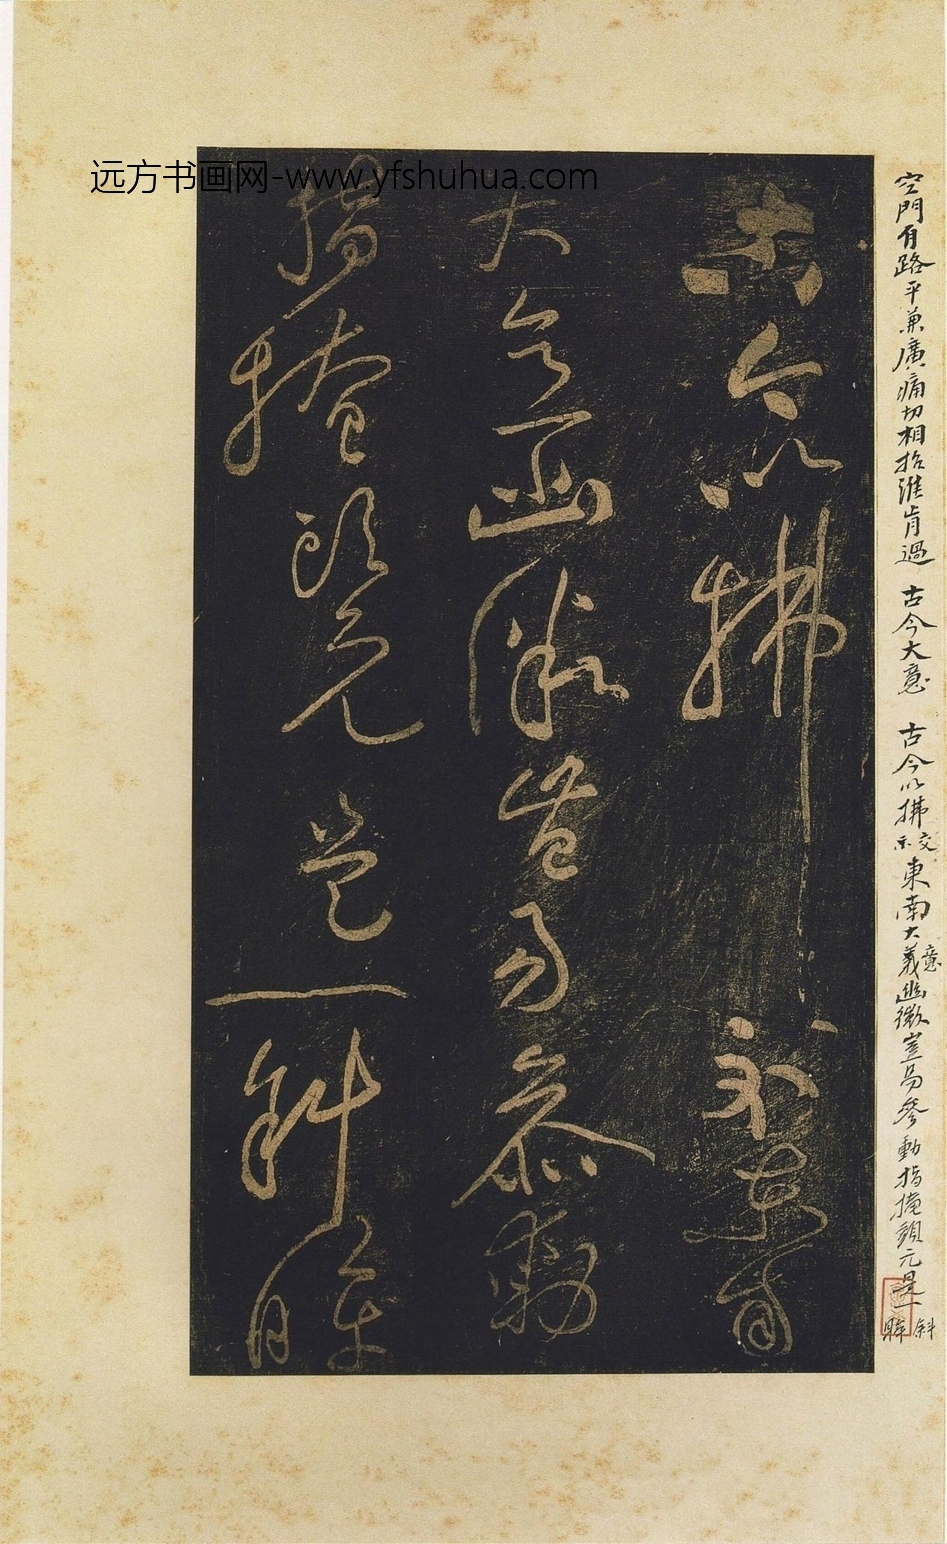 远方书画网-www.yfshuhua.com
空門有路平兼廣痛切相招誰肯過 古今大意 古今以拂示東南大義幽微豈易參動指掩頭元是一斜
交
意
眸
古今以拂示東南
大意幽微豈易參動
指掩頭元是一斜眸